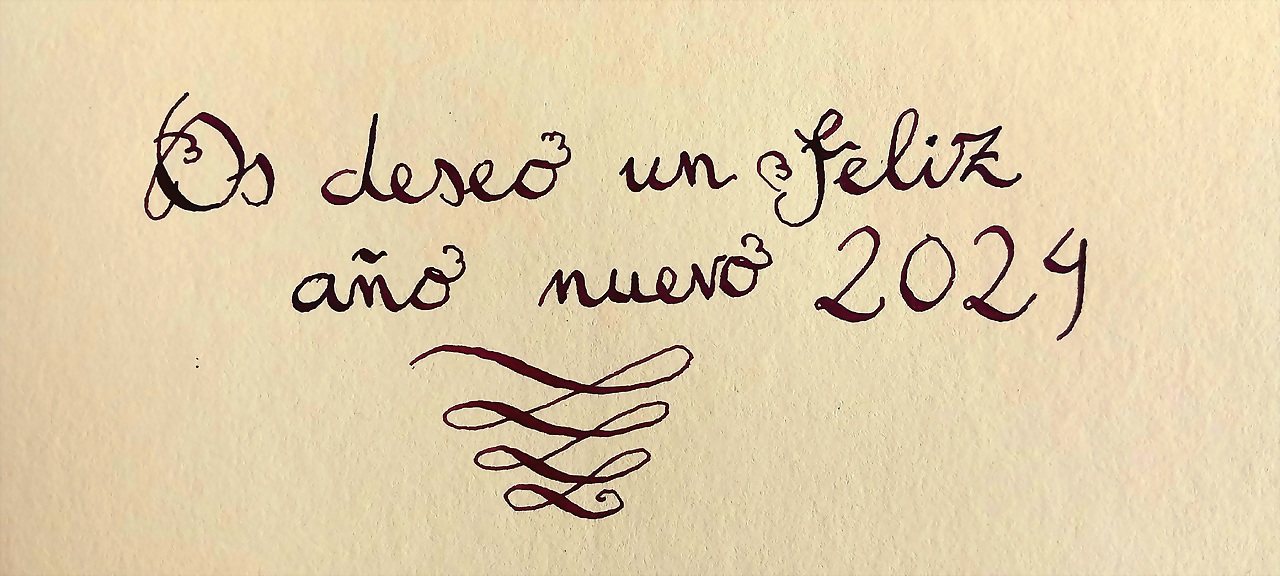 Os deseo un feliz
año nuevo 2024